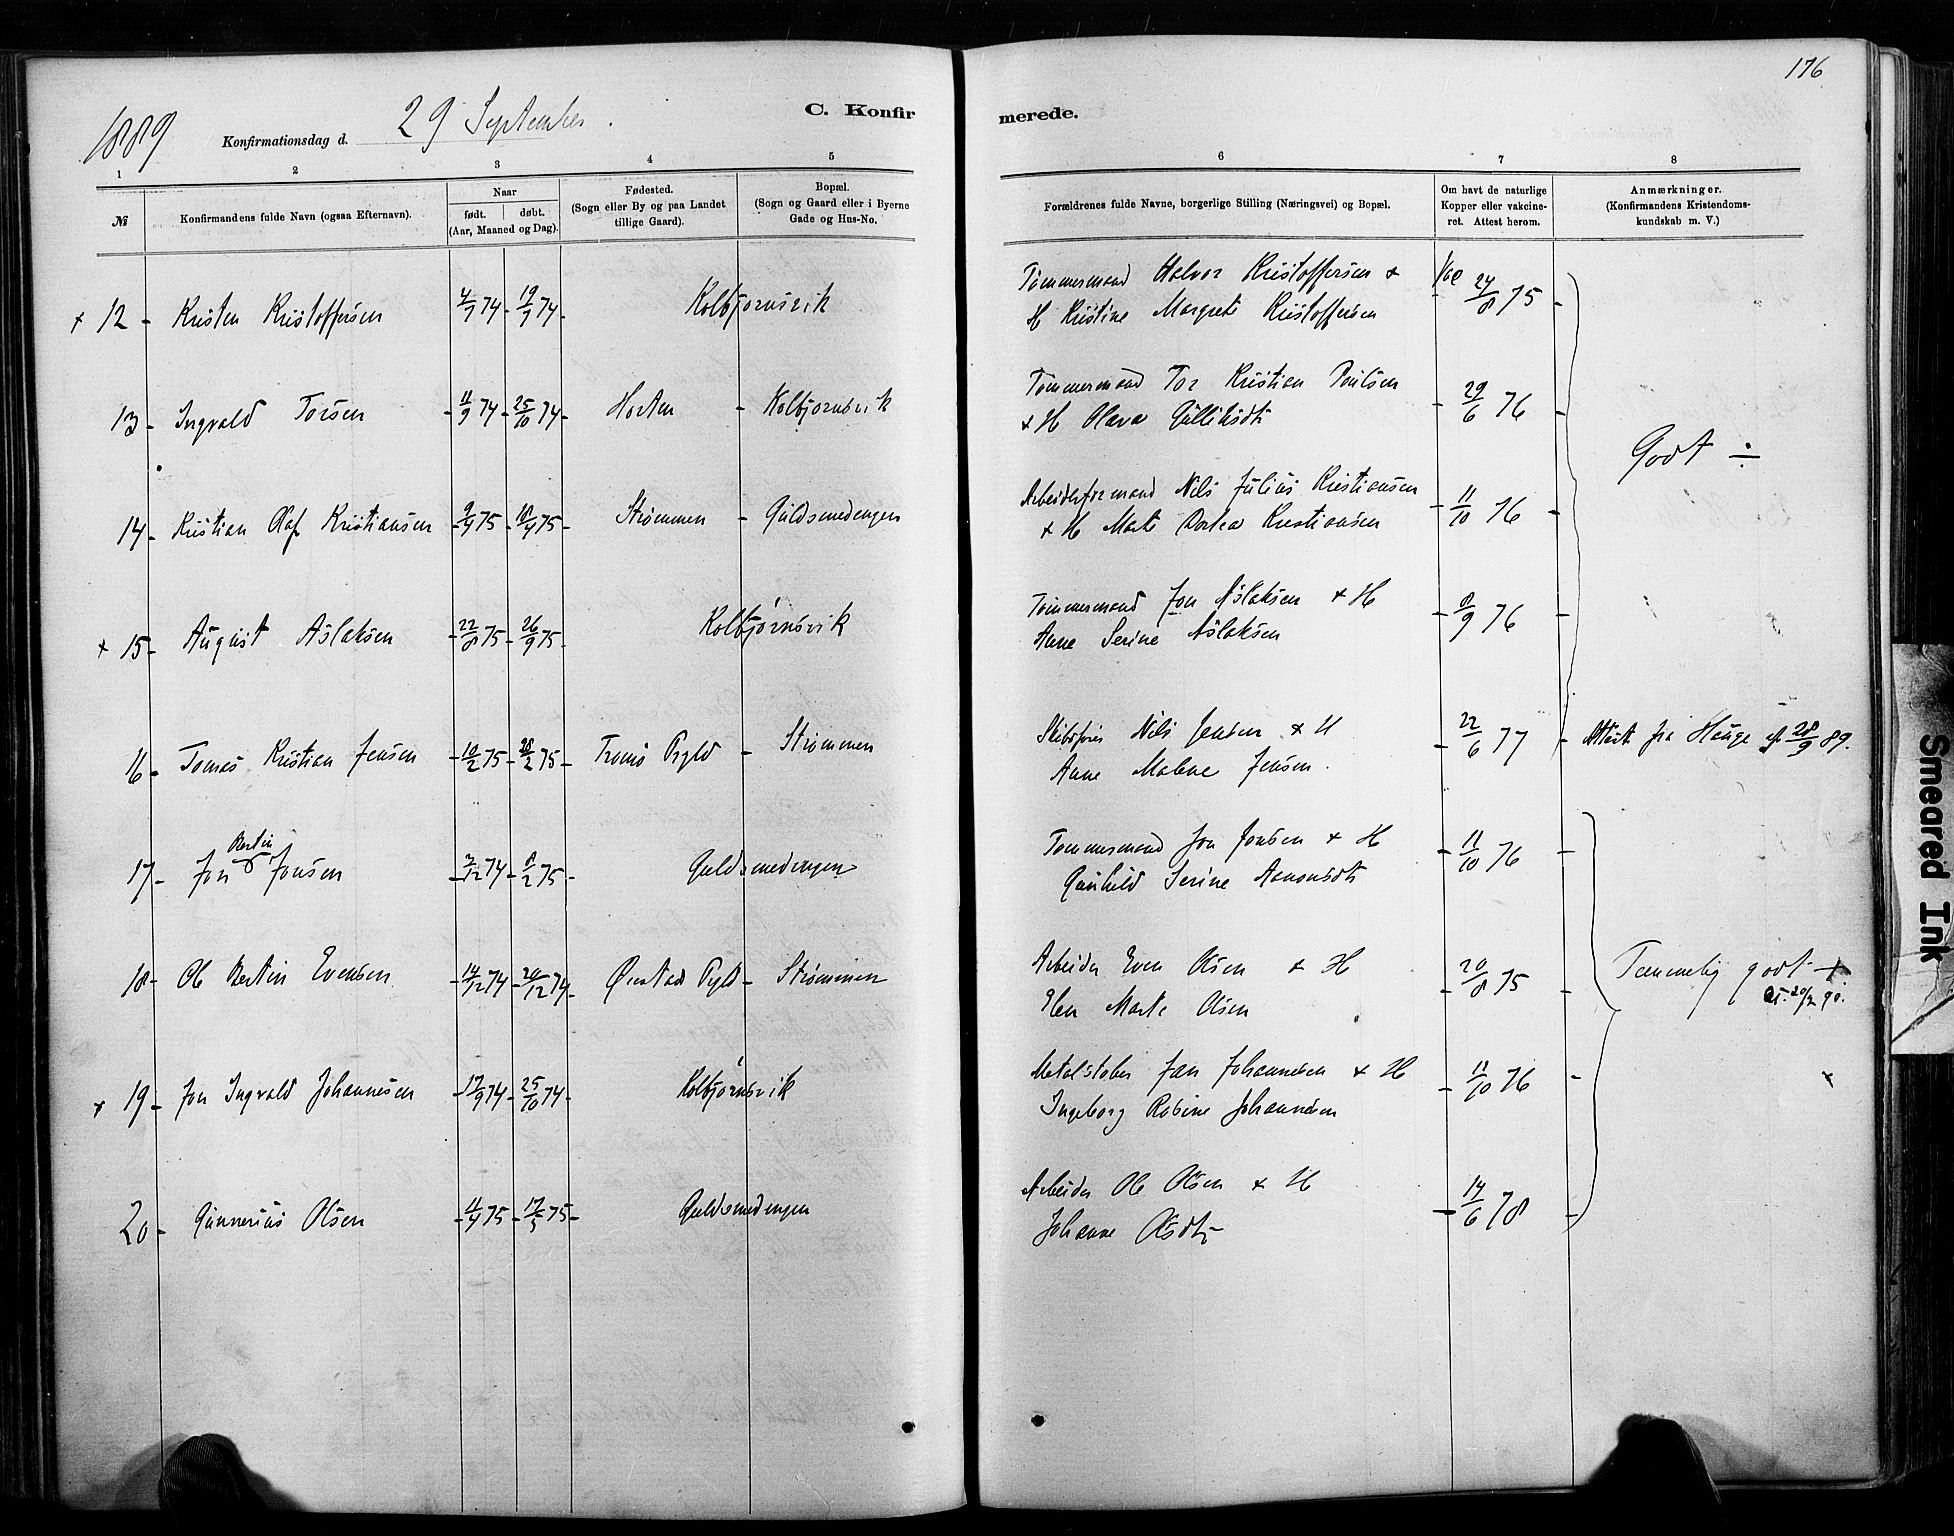 176
1889
Konfirmationsdag d. 29 September.
C. Konfirmerede.
1 2 3 4 5 6 7 8
№
Konfirmandens fulde Navn (ogsaa Efternavn).
Naar
født. døbt.
(Aar, Maaned og Dag).
Fødested.
(Sogn eller By og paa Landet
tillige Gaard).
Bopæl.
(Sogn og Gaard eller i Byerne
Gade og Hus-No.
Forældrenes fulde Navne, borgerlige Stilling (Næringsvei) og Bopæl.
Om havt de naturlige
Kopper eller vakcine-
ret. Attest herom.
Anmærkninger.
(Konfirmandens Kristendoms-
kundskab m. V.)
+ 12 - Kristen Kristoffersen 4/7 74 - 19/7 74 - Kolbjørnsvik Tømmermand Halvor Kristoffersen + Vac 24/8 75 -
H Kristine Margrete Kristoffersen
13 - Ingvald Torsen - 11/9 74 - 25/10 74 - Horten - Kolbjørnsvik Tømmermand Tor Kristian - 29/6 76 -
+ H Olava Gulliksdtr
Godt ÷
14 - Kristian Olaf Kristiansen - 9/4 75 - 18/4 75 - Strømmen - Guldsmedengen Arbeidsformand Nils Julius Kristiansen - 11/10 76 -
+ H Marte Dorthea Kristiansen
+ 15 - August Aslaksen - 22/8 75 - 26/9 75 - Kolbjørnsvik Tømmermand Jon Aslaksen + H - 8/9 76 -
Anne Serine Aslaksen
16 - Tomas Kristian Jensen - 10/2 75 - 28/2 75 - Tromø Prgld - Strømmen Skibsfører Nils Jensen + H - 22/6 77 - Attest fra Hauge 28/9 89.
Anne Malene Jensen.
17 - Jon Bertin Jonsen - 7/12 74 - 8/2 75 - Guldsmedengen Tømmermand Jon Jonsen + H - 11/10 76 -
Gunhild Serine Aanonsdtr
18 - Ole Bertin Evensen - 14/12 74 - 24/12 74 - Øiestad Prgld - Strømmen Arbeider Even Olsen + H - 20/8 75 - Temmelig godt +
Elen Marte Olsen
at. 20/2 90.
+ 19 - Jon Ingvald Johannesen - 17/9 74 - 25/10 74 - Kolbjørnsvik Metalstøber Jan Johannesen + H - 11/10 76 - +
Ingeborg Rosine Johannesen
20 - Gunnerius Olsen - 11/4 75 - 17/5 75 - Guldsmedengen Arbeider Ole Olsen + H - 14/6 78 -
Johanne Olsdtr
Smeared Ink